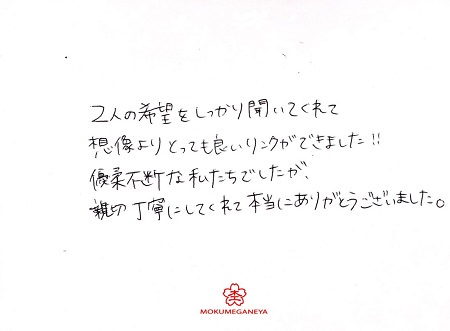 2人の希望をしっかり聞いてくれて
想像よりとっても良いリングができました!!
優柔不断な私たちでしたが、
親切丁寧にしてくれて本当にありがとうございました。
杢
MOKUMEGANEYA